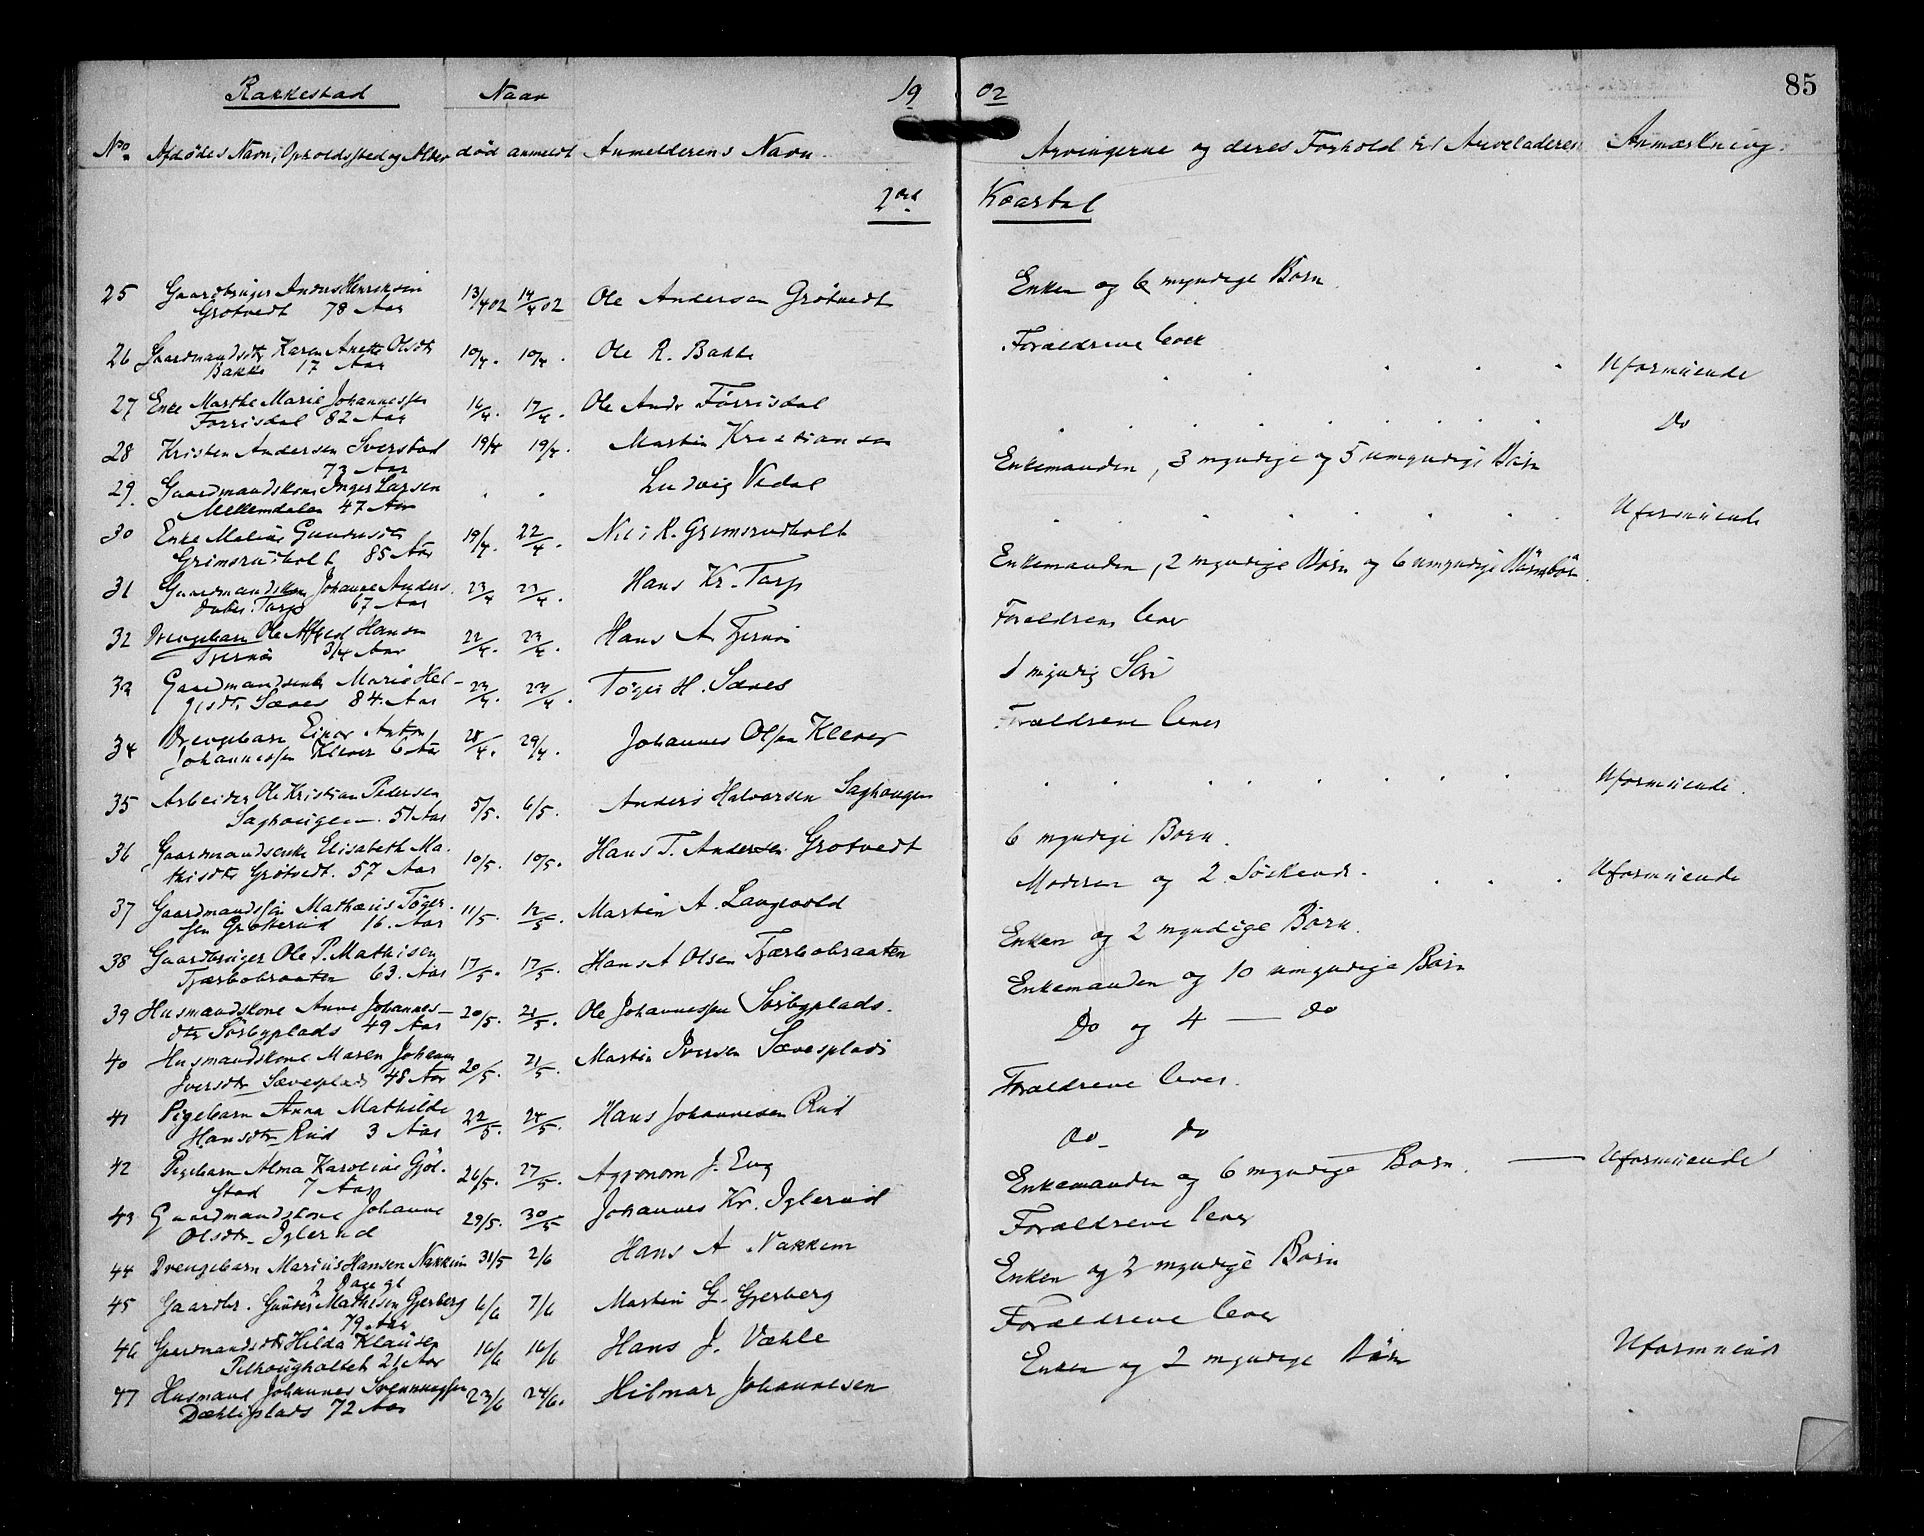 Rakkestad Naar 19 02 85
No. Afdødes Navn, Opholdssted og Alder død anmeldt Anmelderens Navn. Arvingerne og deres Forhold til Arveladeren Anmærkning.
2det Kvartal
25 Gaardbruger Anders Henriksen 13/4 02 14/4 02 Ole Andersen Grøtvedt Enken og 6 myndige Børn.
Grøtvedt 78 Aar
26 Gaardmandsdtr Karen Anette Olsdtr 10/4. 10/4. Ole R. Bakke Forældrene lever
Bakke 17 Aar
27 Enke Marthe Marie Johannessen 16/4. 17/4. Ole Andr Førrisdal Uformuende
Førrisdal 82 Aar
28 Kristen Andersen Sverstad 19/4 19/4. Martin Kristiansen Do
73 Aar
29. Gaardmandskone Inger Larsen . . Ludvig Vedal Enkemanden, 3 myndige og 5 umyndige Børn
Mellemdalen 47 Aar
30 Enke Gundersdtr 19/4. 22/4. R. Grimsrudholt Uformuende
Grimsrudholt 85 Aar
31 Gaardmandskone Johanne Anders. 23/4 23/4. Hans Kr. Tarp Enkemanden, 2 myndige Børn og 6 umyndige Børnebørn.
datter Tarp 67 Aar
32 Drengebarn Ole Alfred Hansen 22/4. 23/4. Hans A. Tjernæs Forældrene lever
Tjernæs 3/4 Aar
33 Gaardmandsenke Marie Hel- 23/4. 23/4. Tøger H. Sæves 1 myndig Søn
gesdtr Sæves 84. Aar
34 Drengebarn Einar Anton 28/4. 29/4. Johannes Olsen Klever Forældrene lever
Johannessen Klever 6 Aar
35 Arbeider Ole Kristian Pedersen 5/5. 6/5. Anders Halvorsen Saghougen Uformuende.
Saghougen. 51 Aar
36 Gaardmandsenke Elisabeth Ma. 10/5. 10/5. Hans T. Andersen Grøtvedt 6 myndige Børn.
thisdtr Grøtvedt. 57 Aar
37 Gaardmandssøn Mathæus Tøger. 11/5. 12/5. Martin A. Langevold Moderen og 2 Søskende. Uformuende
sen Grøtterud 16. Aar
38 Gaardbruger Ole P. Mathisen 17/5. 17/5. Hans A Olsen Tjærbobraaten Enken og 2 myndige Børn.
Tjærbobraaten 63. Aar
39 Husmandskone Anne Johannes- 20/5. 21/5. Ole Johannessen Sørbyplads. Enkemanden og 10 umyndige Børn
dtr Sørbyplads 49 Aar
40 Husmandskone Maren Johanne 20/5. 21/5. Martin Iversen Sævesplads Do og 4 — do
Iversdtr Sævesplads 48 Aar
41 Pigebarn Anna Mathilde 22/5. 24/5. Hans Johannesen Rud Forældrene lever.
Hansdtr Rud 3 Aar
42 Pigebarn Alma Karoline Gjøl. 26/5. 27/5. Agronom J. Eng do- do
stad 7 Aar
43 Gaardmandskone Johanne 29/5. 30/5 Johannes Kr. Iglerud Enkemanden og 6 myndige Børn. — Uformuende
Olsdtr. Iglerud
44 Drengebarn Marius Hansen Nakkim 31/5 2/6 Hans A Nakkim Forældrene lever
2 Dage gl
45 Gaardbr. Gunder Mathisen Gjerberg 6/6 7/6 Martin G. Gjerberg Enken og 2 myndige Børn
79 Aar
46 Gaardmandsdtr Hilda Klausen 16/6 16/6 Hans J. Væhle Forældrene lever
21 Aar
47 Husmand Johannes Svenningsen 23/6 24/6. Hilmar Johannesen Enken og 2 myndige Børn Uformuende
Dæhliplads 72 Aar